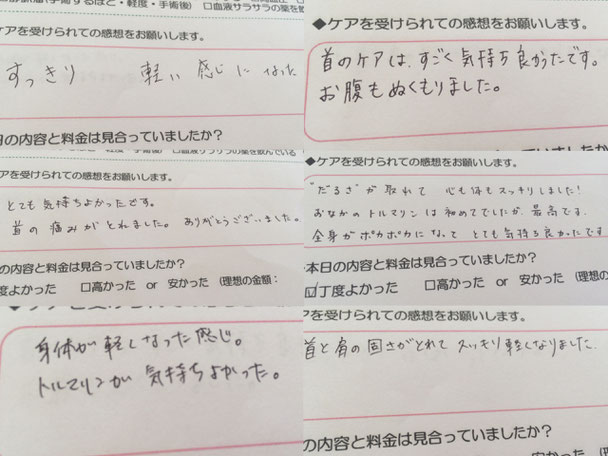 □血液サラサラの薬を飲
ケアを受けられての感想をお願いします。
すっきり 軽い感じになった
日の内容と料金は見合っていましたか?
◆ケアを受けられての感想をお願いします。
首のケアは、すごく気持ち良かったです。
お腹もぬくもりました。
□血液サラサラの薬を飲んでいる
アを受けられての感想をお願いします。
とても気持ちよかったです。
首の痛みがとれました。ありがとうございました。
の内容と料金は見合っていましたか?
度よかった □高かった or 安かった (理想の金額:
◆ケアを受けられての感想をお願いします。
"だるさ"が取れて 心も体もスッキリしました!
おなかのトルマリンは初めてでしたが、最高です。
全身がポカポカになって とても気持ち良かったです
本日の内容と料金は見合っていましたか?
☑丁度よかった □高かった or 安かった (理想の
身体が軽くなった感じ。
トルマリンが気持ちよかった。
アを受けられての感想をお願いします。
首と肩の固さがとれて スッキリ軽くなりました。
の内容と料金は見合っていましたか?